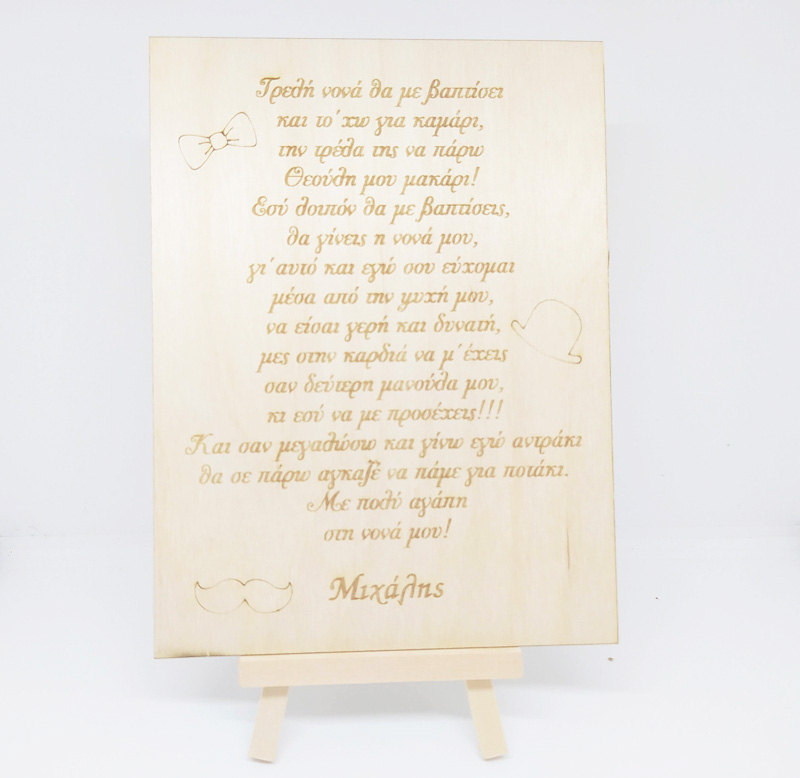 Τρελή νονά θα με βαπτίσει
και το΄χω για καμάρι,
την τρέλα της να πάρω
Θεούλη μου μακάρι!
Εσύ λοιπόν θα με βαπτίσεις,
θα γίνεις η νονά μου,
γι΄αυτό και εγώ σου εύχομαι
μέσα από την ψυχή μου,
να είσαι γερή και δυνατή,
μες στην καρδιά να μ΄έχεις
σαν δεύτερη μανούλα μου,
κι εσύ να με προσέχεις!!!
Και σαν μεγαλώσω και γίνω εγώ αντράκι
θα σε πάρω αγκαζέ να πάμε για ποτάκι.
Με πολύ αγάπη
στη νονά μου!
Μιχάλης